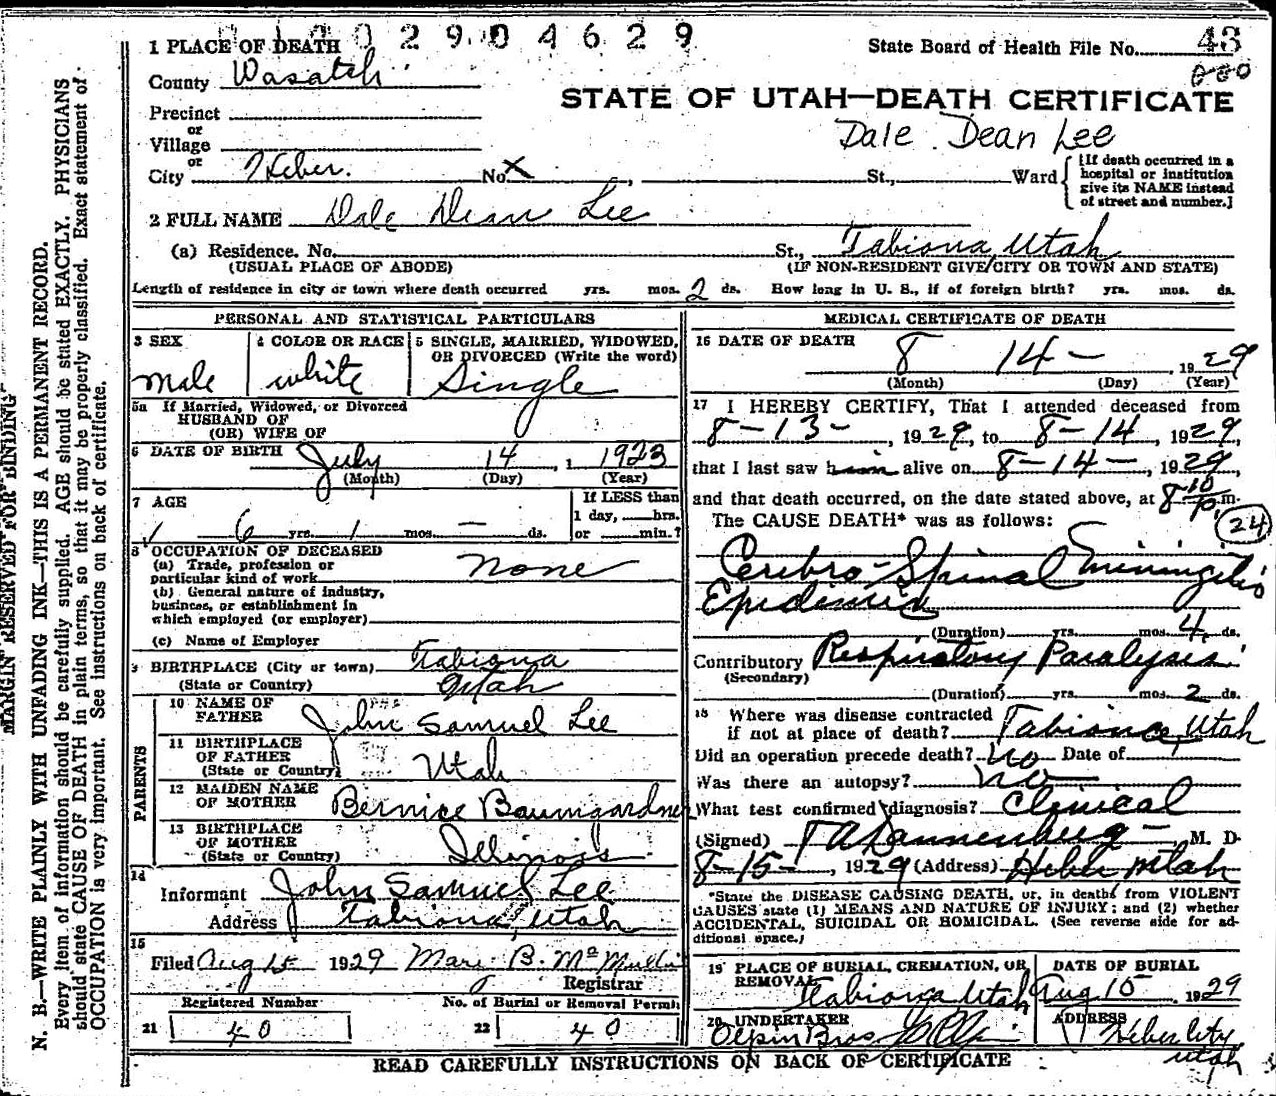 1 0 2 9 0 4 6 2 9
1 PLACE OF DEATH
State Board of Health File No. 43
County Wasatch
STATE OF UTAH—DEATH CERTIFICATE
Precinct
or
Dale Dean Lee
Village
or
City Heber. No X , St., Ward
[If death occurred in a hospital or institution give its NAME instead of street and number.]
2 FULL NAME Dale Dean Lee
(a) Residence. No. St., Tabiona, Utah
(USUAL PLACE OF ABODE) (IF NON-RESIDENT GIVE CITY OR TOWN AND STATE)
Length of residence in city or town where death occurred yrs. mos. 2 ds. How long in U. S., if of foreign birth? yrs. mos. ds.
PERSONAL AND STATISTICAL PARTICULARS
3 SEX
male
4 COLOR OR RACE
white
5 SINGLE, MARRIED, WIDOWED,
OR DIVORCED (Write the word)
Single
5a If Married, Widowed, or Divorced
HUSBAND OF
(OR) WIFE OF
6 DATE OF BIRTH July 14, 1923
(Month) (Day) (Year)
7 AGE
If LESS than
1 day, hrs.
6 yrs. 1 mos. — ds. or min.?
8 OCCUPATION OF DECEASED
(a) Trade, profession or
particular kind of work none
(b) General nature of industry,
business, or establishment in
which employed (or employer)
(c) Name of Employer
9 BIRTHPLACE (City or town) Tabiona
(State or Country) Utah
PARENTS
10 NAME OF
FATHER John Samuel Lee
11 BIRTHPLACE
OF FATHER
(State or Country) Utah
12 MAIDEN NAME
OF MOTHER Bernice Baumgardner
13 BIRTHPLACE
OF MOTHER
(State or Country) Illinois
14
Informant John Samuel Lee
Address Tabiona, Utah
15
Filed Aug 15 1929 B. McMullin
Registrar
Registered Number No. of Burial or Removal Permit
21 40 22 40
MEDICAL CERTIFICATE OF DEATH
16 DATE OF DEATH
8 14 — , 1929
(Month) (Day) (Year)
17 I HEREBY CERTIFY, That I attended deceased from
8-13-, 1929, to 8-14, 1929,
that I last saw him alive on 8-14-, 1929,
and that death occurred, on the date stated above, at 8 10 p. m.
The CAUSE DEATH* was as follows: 24
Cerebro-Spinal Meningitis
Epidemic
(Duration) yrs. mos. 4 ds.
Contributory Respiratory Paralysis
(Secondary)
(Duration) yrs. mos. 2 ds.
18 Where was disease contracted
if not at place of death? Tabiona, Utah
Did an operation precede death? No Date of
Was there an autopsy? no
What test confirmed diagnosis? Clinical
(Signed) T A Dannenberg — M. D
8-15-, 1929 (Address) Heber Utah
*State the DISEASE CAUSING DEATH, or, in deaths from VIOLENT
CAUSES state (1) MEANS AND NATURE OF INJURY; and (2) whether
ACCIDENTAL, SUICIDAL OR HOMICIDAL. (See reverse side for ad-
ditional space.)
19 PLACE OF BURIAL, CREMATION, OR
REMOVAL
Tabiona, Utah
DATE OF BURIAL
Aug 15, 1929
20 UNDERTAKER
Olpin Bros
ADDRESS
Heber City
Utah
READ CAREFULLY INSTRUCTIONS ON BACK OF CERTIFICATE
MARGIN RESERVED FOR BINDING
N. B.—WRITE PLAINLY WITH UNFADING INK—THIS IS A PERMANENT RECORD.
Every item of information should be carefully supplied. AGE should be stated EXACTLY. PHYSICIANS
should state CAUSE OF DEATH in plain terms, so that it may be properly classified. Exact statement of
OCCUPATION is very important. See instructions on back of certificate.